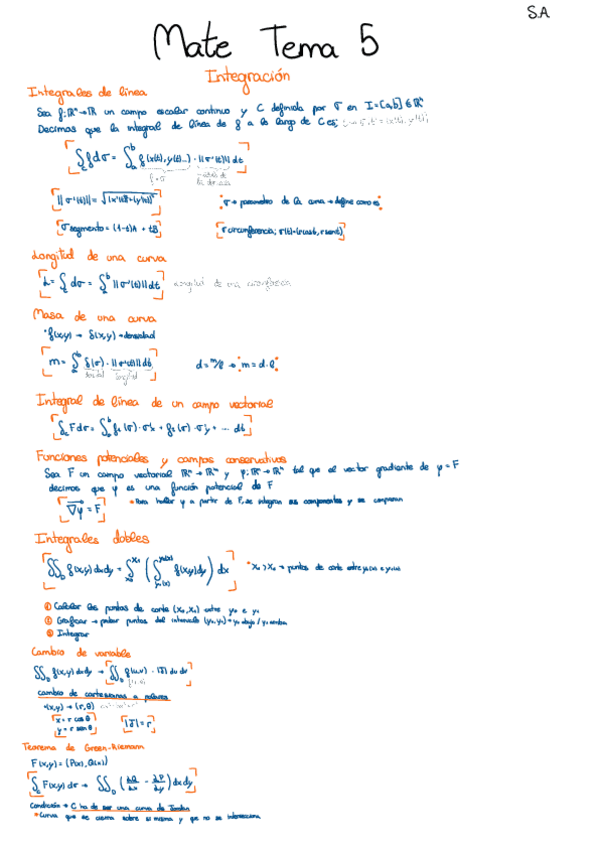 S.A
Mate Tema 5
Integración
Integrales de línea
Sea f: ℝⁿ→ℝ un campo escalar continuo y C definida por σ en I=[a,b] ∈ ℝⁿ
Decimos que la integral de línea de f a lo largo de C es;
∫_C f dσ = ∫_a^b f(x(t), y(t)...) · ||σ'(t)|| dt
||σ'(t)|| = √
σ → parámetro de la curva → define como es
σ segmento = (1-t)A + tB
σ circunferencia; σ(t)=(r cos t, r sen t)
Longitud de una curva
L = ∫_C dσ = ∫_a^b ||σ'(t)|| dt longitud de una circunferencia
Masa de una curva
f(x,y) → δ(x,y) → densidad
m = ∫_a^b δ(σ) · ||σ'(t)|| dt d = m/l → m = d·l
densidad longitud
Integral de línea de un campo vectorial
∫_C F dσ = ∫_a^b f₁(σ) · σ'x + f₂(σ) · σ'y + ... dt
Funciones potenciales y campos conservativos
Sea F un campo vectorial ℝⁿ → ℝⁿ y φ: ℝⁿ → ℝⁿ tal que el vector gradiente de φ = F
decimos que φ es una función potencial de F
∇φ = F
Para hallar φ a partir de F, se integran sus componentes y se comparan
Integrales dobles
∬_D f(x,y) dxdy = ∫ ( ∫ f(x,y) dy ) dx
x₀ x₁ → puntos de corte entre
① Calcular los puntos de corte (x₀, x₁) entre y₀ e y₁
② Graficar → probar puntos del intervalo
③ Integrar
Cambio de variable
∬_D f(x,y) dxdy → ∬_D f(u,v) · |J| du dv
cambio de cartesianas a polares
(x,y) → (r,θ)
x = r cos θ
y = r sen θ
|J| = r
Teorema de Green-Riemann
F(x,y) =
∫_C F(x,y) dσ → ∬_D (∂Q/∂x - ∂P/∂y) dxdy
Condición → C ha de ser una curva de Jordan
Curva que se cierra sobre sí misma y que no se intersecciona